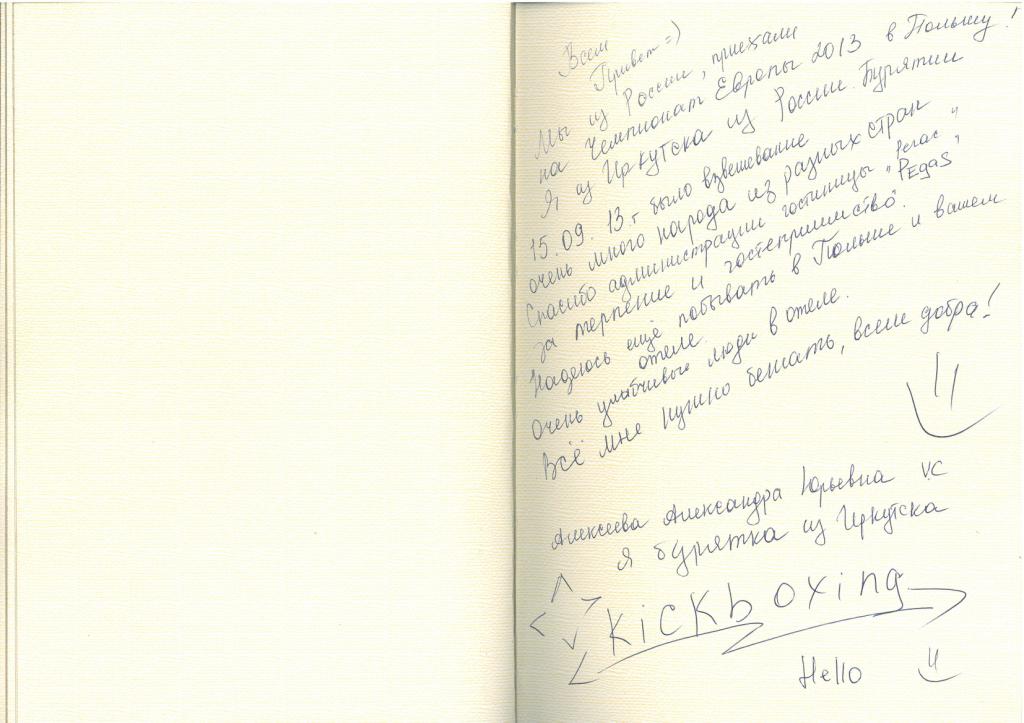 Всем
Привет =)
Мы из России, приехали
на Чемпионат Европы 2013 в Польшу!
Я из Иркутска из России. Бурятии
15.09.13г было взвешевание
очень много народа из разных стран
Спасибо администрации гостиницы „Pегас"
„PEgaS"
за терпение и гостеприимство.
Надеюсь ещё побывать в Польше и вашем
отеле.
Очень улыбчивые люди в отеле.
Всё мне нужно бежать, всем добра!
Алексеева Александра Юрьевна V.C
Я бурятка из Иркутска
Kickboxing
Hello